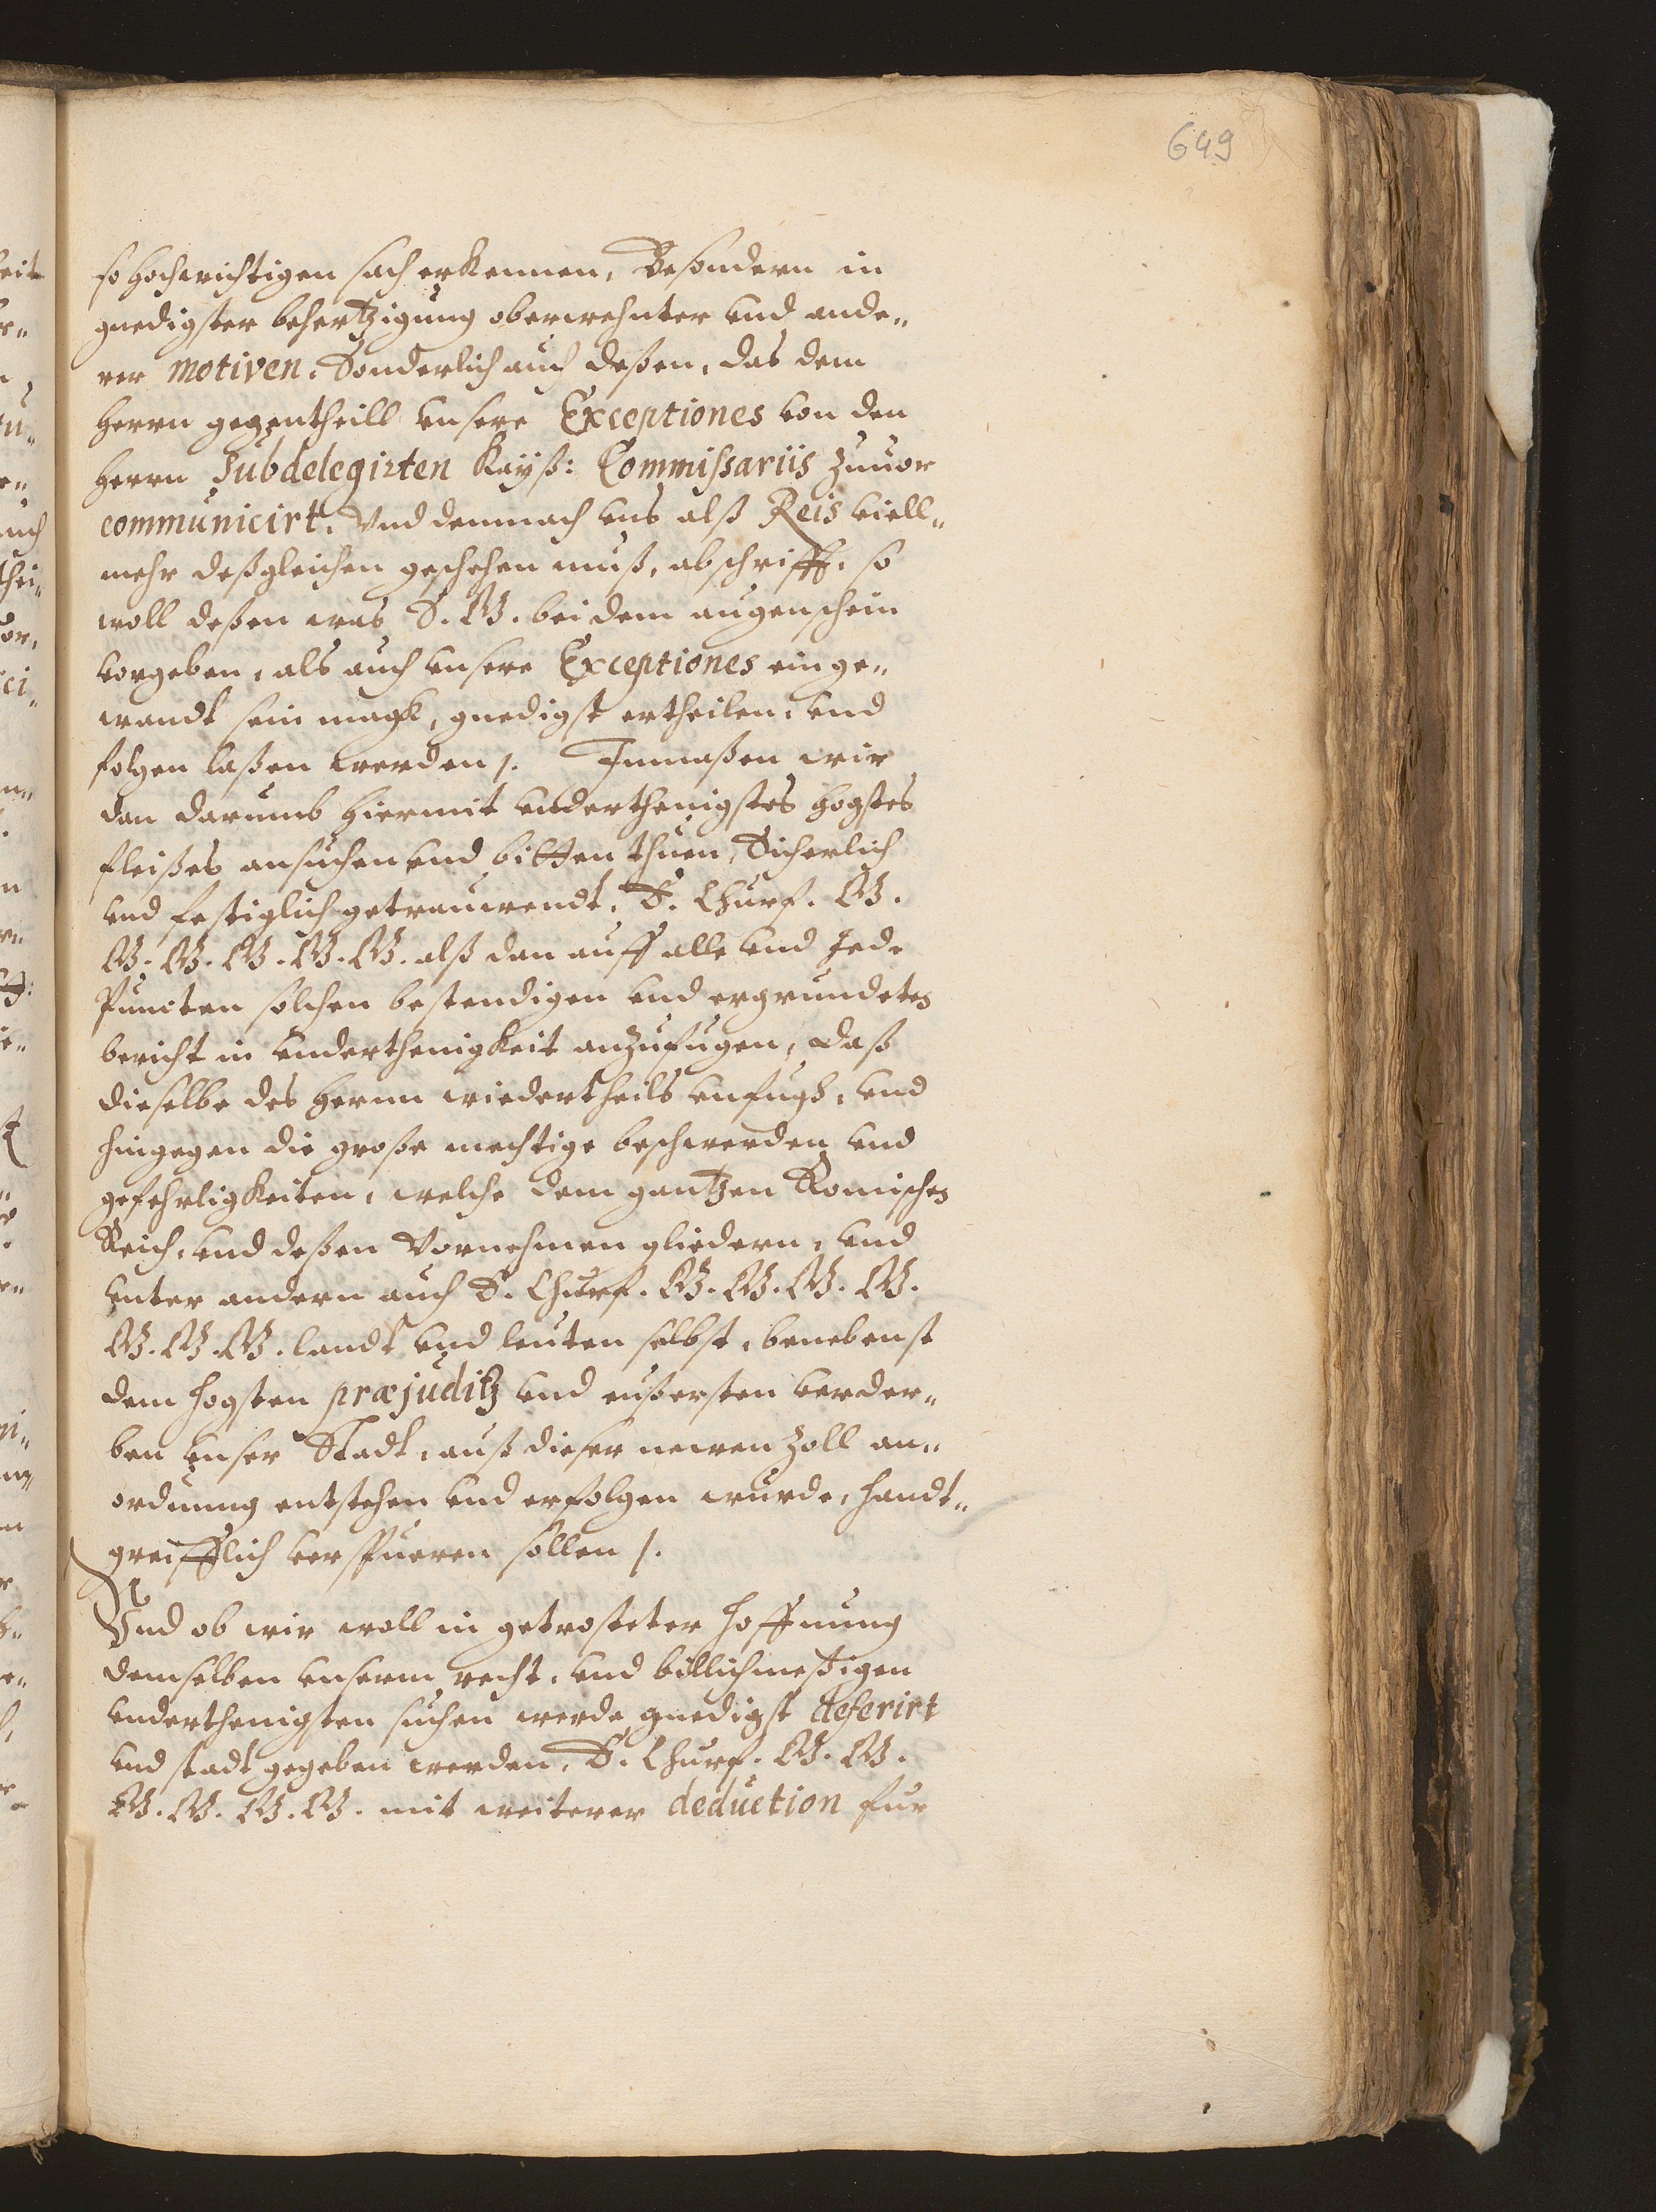 649
so hochwichtigen sach erkennen, Besondern in
gnedigster behertzigung oberwehnter vnd ande„
rer motiven, Sonderlich auch deßen, das dem
herrn gegentheill vnsere Exceptiones von den
herrn Subdelegirten Kayß: Commißariis zuuor
communicirt, Vnd demnach vns alß Reis viell„
mehr deßgleichen geschehen muß, abschrifft, so
woll deßen was S. G. bei dem augenschein
vorgeben, als auch vnsere Exceptiones einge„
wandt sein magk, gnedigst ertheilen, vnd
folgen laßen werden /. Inmaßen wir
dan darumb hiermit vnderthenigstes hogstes
fleißes ansuchen vnd bitten thuen, Sicherlich
vnd festiglich getrauwendt, E. Churf. G.
G. G. G. G. G. alß dan auff alle vnd Jede
Puncten solchen bestendigen vnd ergrundeten
bericht in vnderthenigkeit anzufugen, daß
dieselbe des herrn wiedertheils vnfugh, vnd
hingegen die große mechtige beschwerden vnd
gefehrligkeiten, welche dem gantzen Romischen
Reich, vnd deßen Vornehmen gliedern, vnd
vnter andern auch E. Churf. G. G. G. G.
G. G. G. landt vnd leuten selbst, benebenst
dem hogsten præjuditz vnd eußersten verder„
ben vnser Stadt, auß dieser newen Zoll an„
ordnung entstehen vnd erfolgen wurde, handt„
greifflich verspueren sollen /.
Vnd ob wir woll in getrosteter hoffnung
demselben vnserm recht, vnd billichmeßigen
vnderthenigsten suchen werde gnedigst deferirt
vnd stadt gegeben werden, E. Churf. G. G.
G. G. G. G. mit weiterer deduction fur